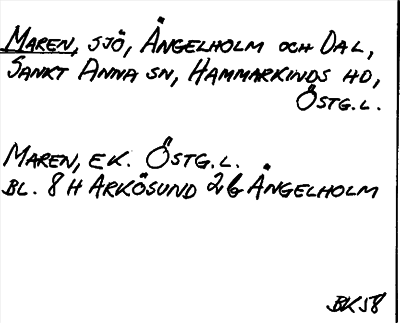 MAREN, SJÖ, ÄNGELHOLM OCH DAL,
SANKT ANNA SN, HAMMARKINDS HD,
ÖSTG.L.
MAREN, EK. ÖSTG.L.
BL. 8 H ARKÖSUND 2 G ÄNGELHOLM
BK58